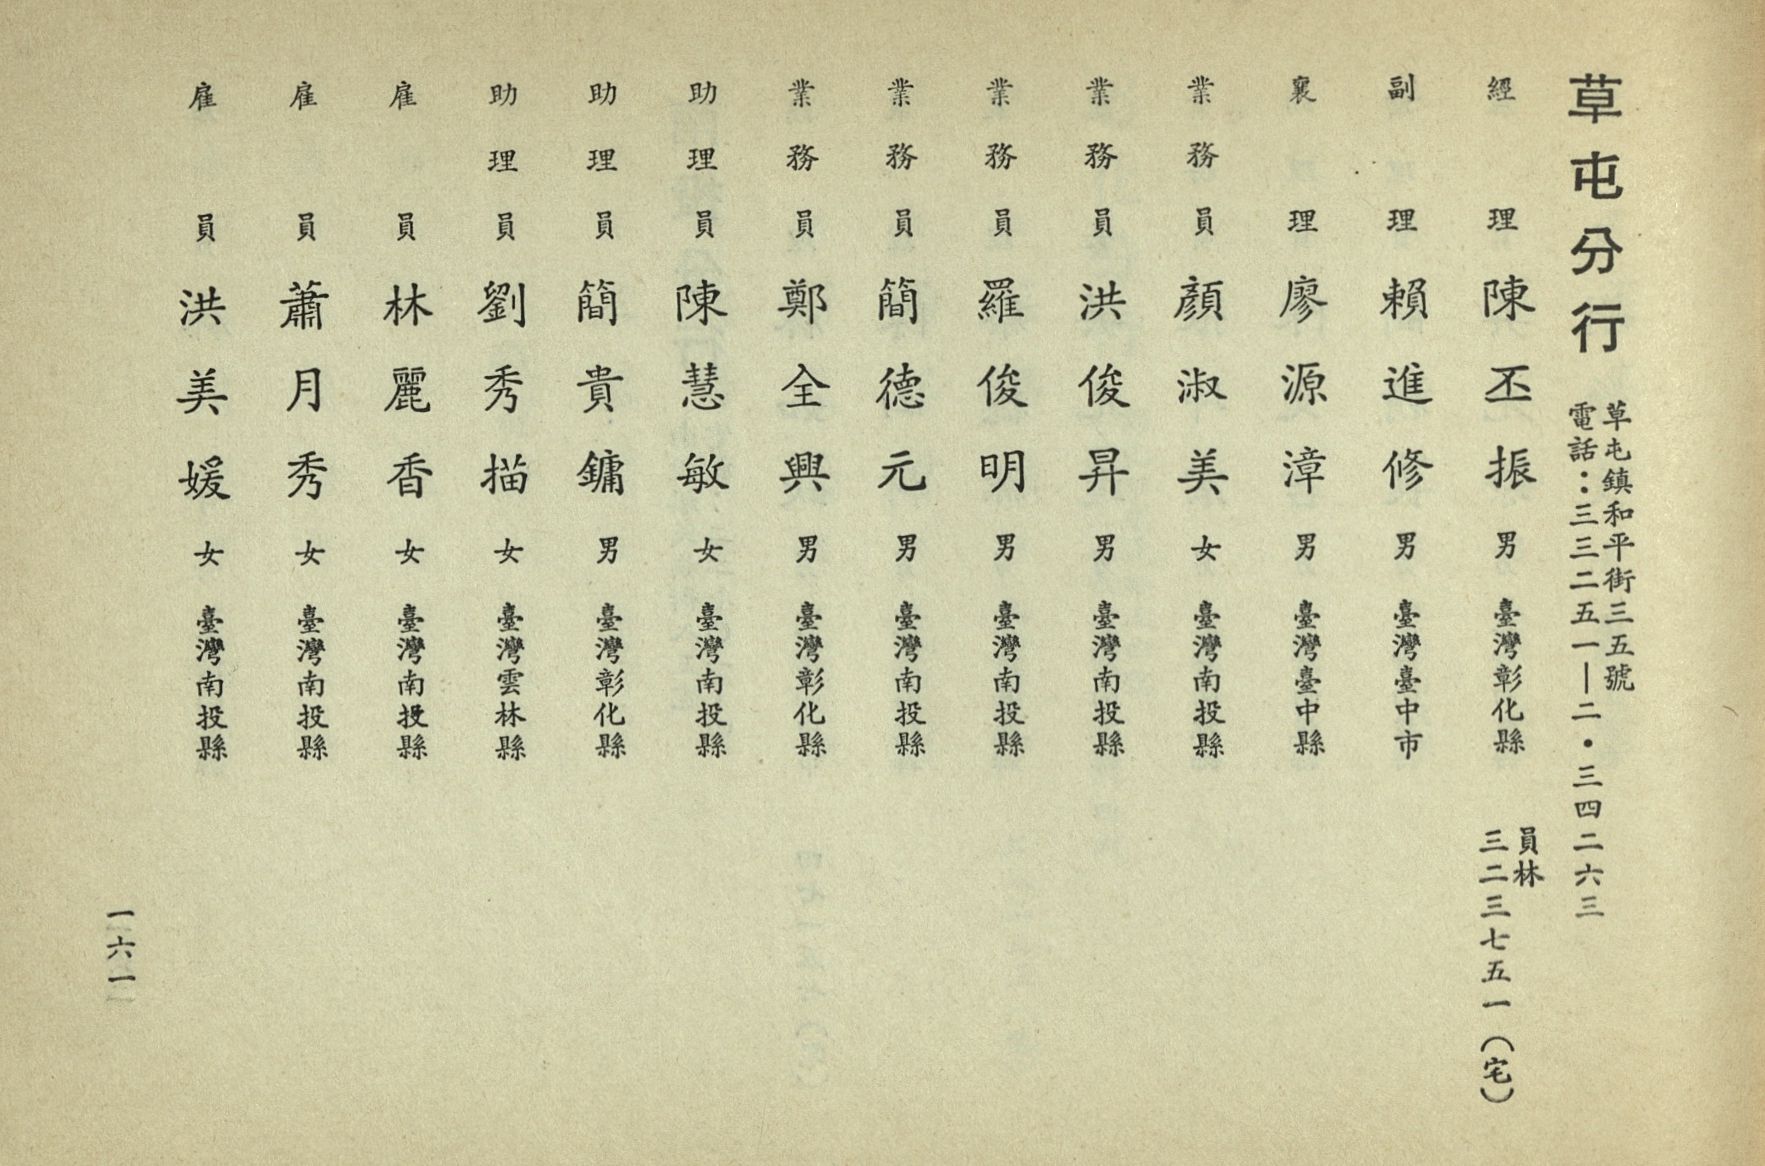 草屯分行
草屯鎮和平街三五號
電話：三三二五一—二・三四二六三
經理 陳丕振 男 臺灣彰化縣
員林
三二三七五一（宅）
副理 賴進修 男 臺灣臺中市
襄理 廖源漳 男 臺灣臺中縣
業務員 顏淑美 女 臺灣南投縣
業務員 洪俊昇 男 臺灣南投縣
業務員 羅俊明 男 臺灣南投縣
業務員 簡德元 男 臺灣南投縣
業務員 鄭全興 男 臺灣彰化縣
助理員 陳慧敏 女 臺灣南投縣
助理員 簡貴鏞 男 臺灣彰化縣
助理員 劉秀描 女 臺灣雲林縣
雇員 林麗香 女 臺灣南投縣
雇員 蕭月秀 女 臺灣南投縣
雇員 洪美媛 女 臺灣南投縣
一六一